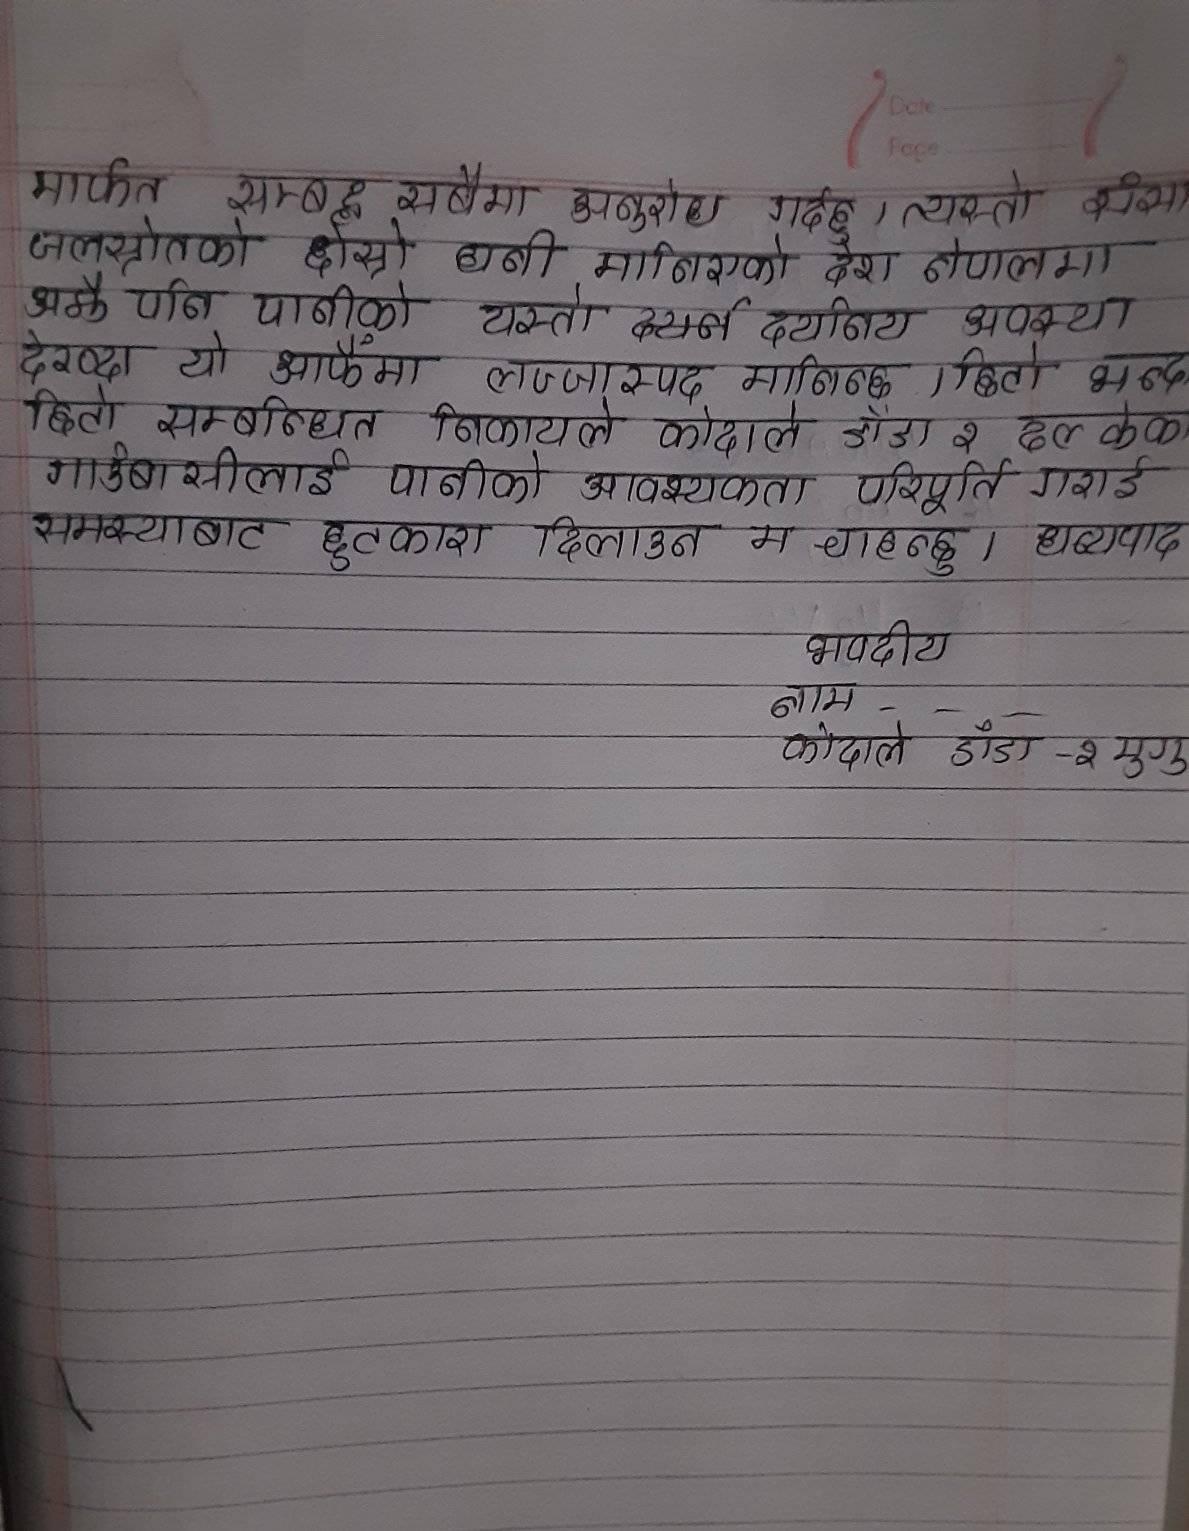 Date
Page
मार्फत सम्बद्ध सबैमा अनुरोध गर्दछु । त्यस्तो
जलस्रोतको दोस्रो धनी मानिएको देश नेपालमा
अझै पनि पानीको यस्तो दयनिय अवस्था
देख्दा यो आफैँमा लज्जास्पद मानिन्छ । छिटो भन्दा
छिटो सम्बन्धित निकायले कोदाले डाँडा २
गाउँबासीलाई पानीको आवश्यकता परिपूर्ति गराई
समस्याबाट छुटकारा दिलाउन म चाहन्छु । धन्यवाद
भवदीय
नाम - - -
कोदाले डाँडा -२ मुगु